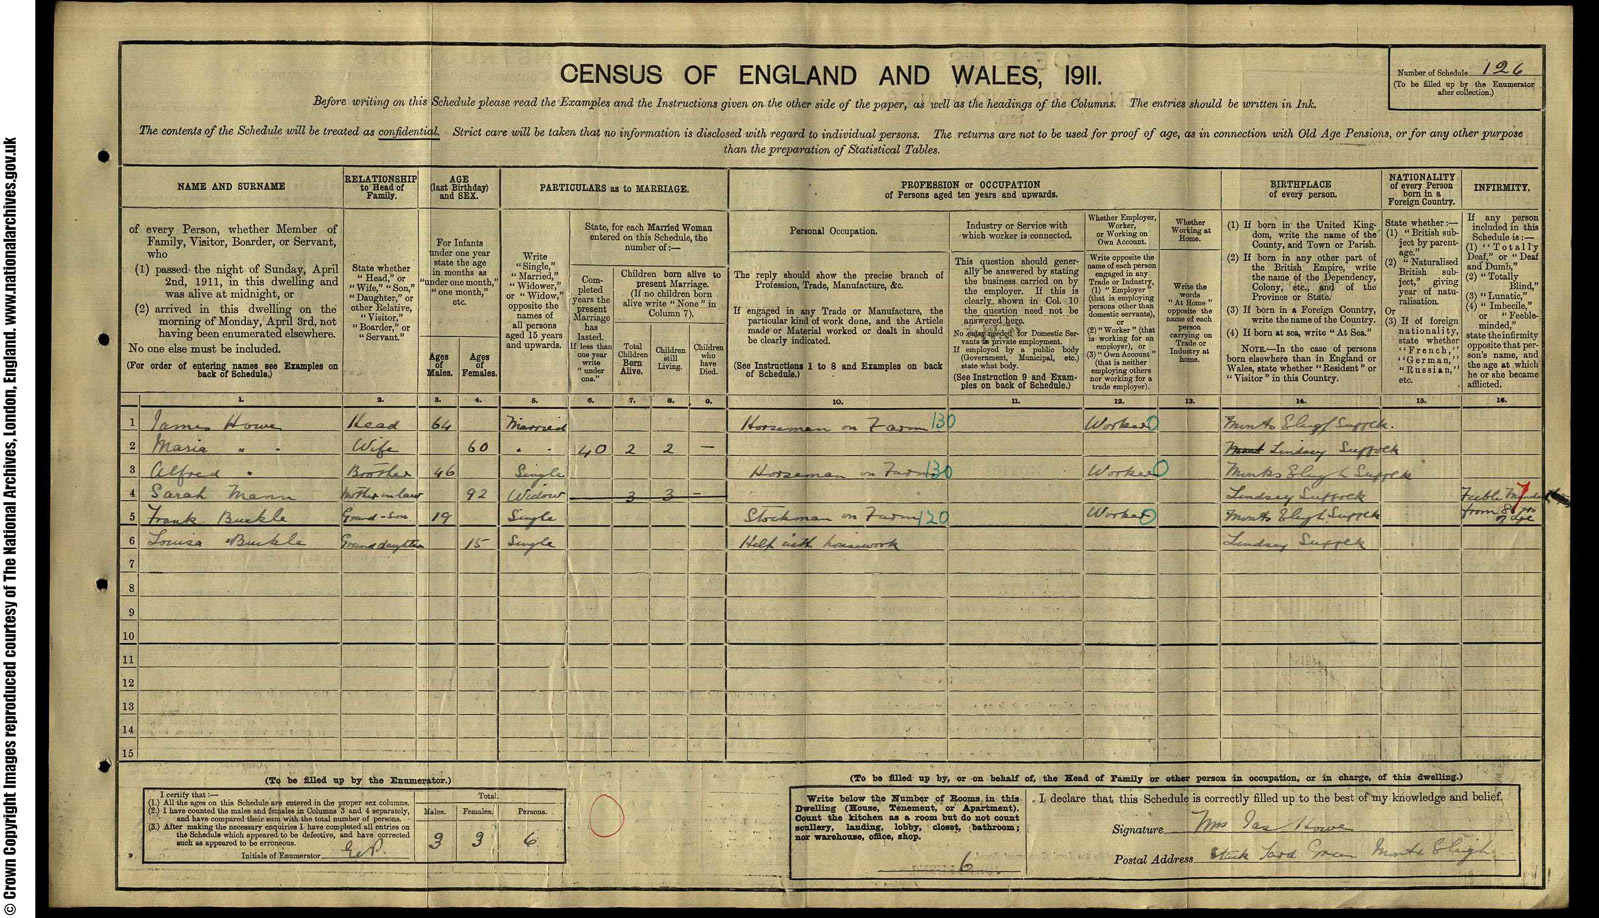 © Crown Copyright Images reproduced courtesy of The National Archives, London, England. www.nationalarchives.gov.uk
CENSUS OF ENGLAND AND WALES, 1911.
Number of Schedule 126
(To be filled up by the Enumerator
after collection.)
Before writing on this Schedule please read the Examples and the Instructions given on the other side of the paper, as well as the headings of the Columns. The entries should be written in Ink.
The contents of the Schedule will be treated as confidential. Strict care will be taken that no information is disclosed with regard to individual persons. The returns are not to be used for proof of age, as in connection with Old Age Pensions, or for any other purpose
than the preparation of Statistical Tables.
NAME AND SURNAME
of every Person, whether Member of
Family, Visitor, Boarder, or Servant,
who
(1) passed the night of Sunday, April
2nd, 1911, in this dwelling and
was alive at midnight, or
(2) arrived in this dwelling on the
morning of Monday, April 3rd, not
having been enumerated elsewhere.
No one else must be included.
(For order of entering names see Examples on
back of Schedule.)
RELATIONSHIP
to Head of
Family.
State whether
"Head," or
"Wife," "Son,"
"Daughter," or
other Relative,
"Visitor,"
"Boarder," or
"Servant."
AGE
(last Birthday)
and SEX.
For Infants
under one year
state the age
in months as
"under one month,"
"one month,"
etc.
Ages
of
Males.
Ages
of
Females.
PARTICULARS as to MARRIAGE.
Write
"Single,"
"Married,"
"Widower,"
or "Widow,"
opposite the
names of
all persons
aged 15 years
and upwards.
State, for each Married Woman
entered on this Schedule, the
number of:—
Com-
pleted
years the
present
Marriage
has
lasted.
If less than
one year
write
"under
one."
Children born alive to
present Marriage.
(If no children born
alive write "None" in
Column 7).
Total
Children
Born
Alive.
Children
still
Living.
Children
who
have
Died.
PROFESSION or OCCUPATION
of Persons aged ten years and upwards.
Personal Occupation.
The reply should show the precise branch of
Profession, Trade, Manufacture, &c.
If engaged in any Trade or Manufacture, the
particular kind of work done, and the Article
made or Material worked or dealt in should
be clearly indicated.
(See Instructions 1 to 8 and Examples on back
of Schedule.)
Industry or Service with
which worker is connected.
This question should gener-
ally be answered by stating
the business carried on by
the employer. If this is
clearly shown in Col. 10
the question need not be
answered here.
No entry needed for Domestic Ser-
vants in private employment.
If employed by a public body
(Government, Municipal, etc.)
state what body.
(See Instruction 9 and Exam-
ples on back of Schedule.)
Whether Employer,
Worker,
or Working on
Own Account.
Write opposite the
name of each person
engaged in any
Trade or Industry,
(1) "Employer"
(that is employing
persons other than
domestic servants),
or
(2) "Worker" (that
is working for an
employer), or
(3) "Own Account"
(that is neither
employing others
nor working for a
trade employer).
Whether
Working at
Home.
Write the
words
"At Home"
opposite the
name of each
person
carrying on
Trade or
Industry at
home.
BIRTHPLACE
of every person.
(1) If born in the United King-
dom, write the name of the
County, and Town or Parish.
(2) If born in any other part of
the British Empire, write
the name of the Dependency,
Colony, etc., and of the
Province or State.
(3) If born in a Foreign Country,
write the name of the Country.
(4) If born at sea, write "At Sea."
NOTE.—In the case of persons
born elsewhere than in England or
Wales, state whether "Resident" or
"Visitor" in this Country.
NATIONALITY
of every Person
born in a
Foreign Country.
State whether:—
(1) "British sub-
ject by parent-
age."
(2) "Naturalised
British sub-
ject," giving
year of natu-
ralisation.
Or
(3) If of foreign
nationality,
state whether
"French,"
"German,"
"Russian,"
etc.
INFIRMITY.
If any person
included in this
Schedule is:—
(1) "Totally
Deaf," or "Deaf
and Dumb,"
(2) "Totally
Blind,"
(3) "Lunatic,"
(4) "Imbecile,"
or "Feeble-
minded,"
state the infirmity
opposite that per-
son's name, and
the age at which
he or she became
afflicted.
1. 2. 3. 4. 5. 6. 7. 8. 9. 10. 11. 12. 13. 14. 15. 16.
1 James Howe Head 64 Married Horseman on Farm 130 Worker 0 Monks Eleigh Suffolk.
2 Maria " " Wife 60 " " 40 2 2 — Lindsey Suffolk
3 Alfred " Brother 46 Single Horseman on Farm 130 Worker 0 Monks Eleigh Suffolk
4 Sarah Mann Mother in law 92 Widow 3 3 – Lindsey Suffolk Feeble Minded
5 Frank Buckle Grand-son 19 Single Stockman on Farm 120 Worker 0 Monks Eleigh Suffolk from
of age
6 Louisa Buckle Grand daughter 15 Single Help with housework Lindsey Suffolk
7
8
9
10
11
12
13
14
15
(To be filled up by the Enumerator.)
I certify that:—
(1.) All the ages on this Schedule are entered in the proper sex columns.
(2.) I have counted the males and females in Columns 3 and 4 separately,
and have compared their sum with the total number of persons.
(3.) After making the necessary enquiries I have completed all entries on
the Schedule which appeared to be defective, and have corrected
such as appeared to be erroneous.
Initials of Enumerator
Total.
Males. Females. Persons.
3 3 6
(To be filled up by, or on behalf of, the Head of Family or other person in occupation, or in charge, of this dwelling.)
Write below the Number of Rooms in this
Dwelling (House, Tenement, or Apartment).
Count the kitchen as a room but do not count
scullery, landing, lobby, closet, bathroom;
nor warehouse, office, shop.
6
I declare that this Schedule is correctly filled up to the best of my knowledge and belief.
Signature Mrs Jas Howe
Postal Address Stack Yard Green Monks Eleigh